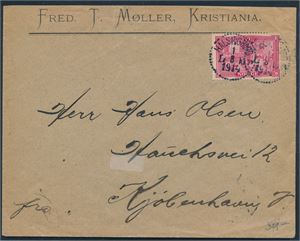 FRED. T. MØLLER, KRISTIANIA.
1914
Herr Hans Olsen,
Hauchsvei 12
Kjöbenhavn V.
fra